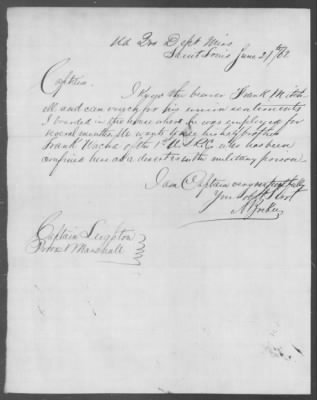 Hd Qrs Dept Miss
Saint Louis June 21st/62
Captain
I know the bearer Frank Mitch
ell and can vouch for his union sentiments
I boarded in the house where he was employed for
several months. He wants to see his half brother
Frank Wacha of the 1st U.S. who has been
confined here as a deserter in the military prison
I am Captain very respectfully
Your Obdt Svt
Captain Leighton
Provost Marshall